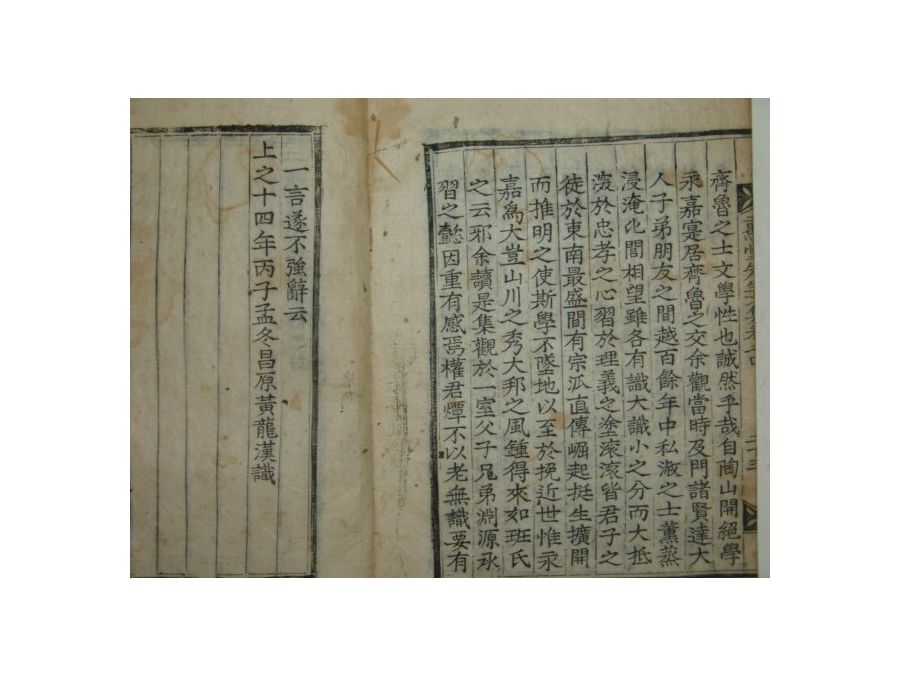 齊魯之士文學性也誠然乎哉自陶山開絕學
永嘉寔居齊魯之交余觀當時及門諸賢達大
人子弟朋友之間越百餘年中私淑之士薰蒸
浸淹化間相望雖各有識大識小之分而大抵
深於忠孝之心習於理義之塗滚滚皆君子之
徒於東南最盛間有宗派直傳崛起挺生擴開
而推明之使斯學不墜地以至於挽近世惟永
嘉爲大豈山川之秀大邦之風鍾得來如班氏
之云邪余讀是集觀於一室父子兄弟淵源承
習之懿因重有感焉權君㷫不以老無識要有
一言遂不強辭云
上之十四年丙子孟冬昌原黃龍漢識